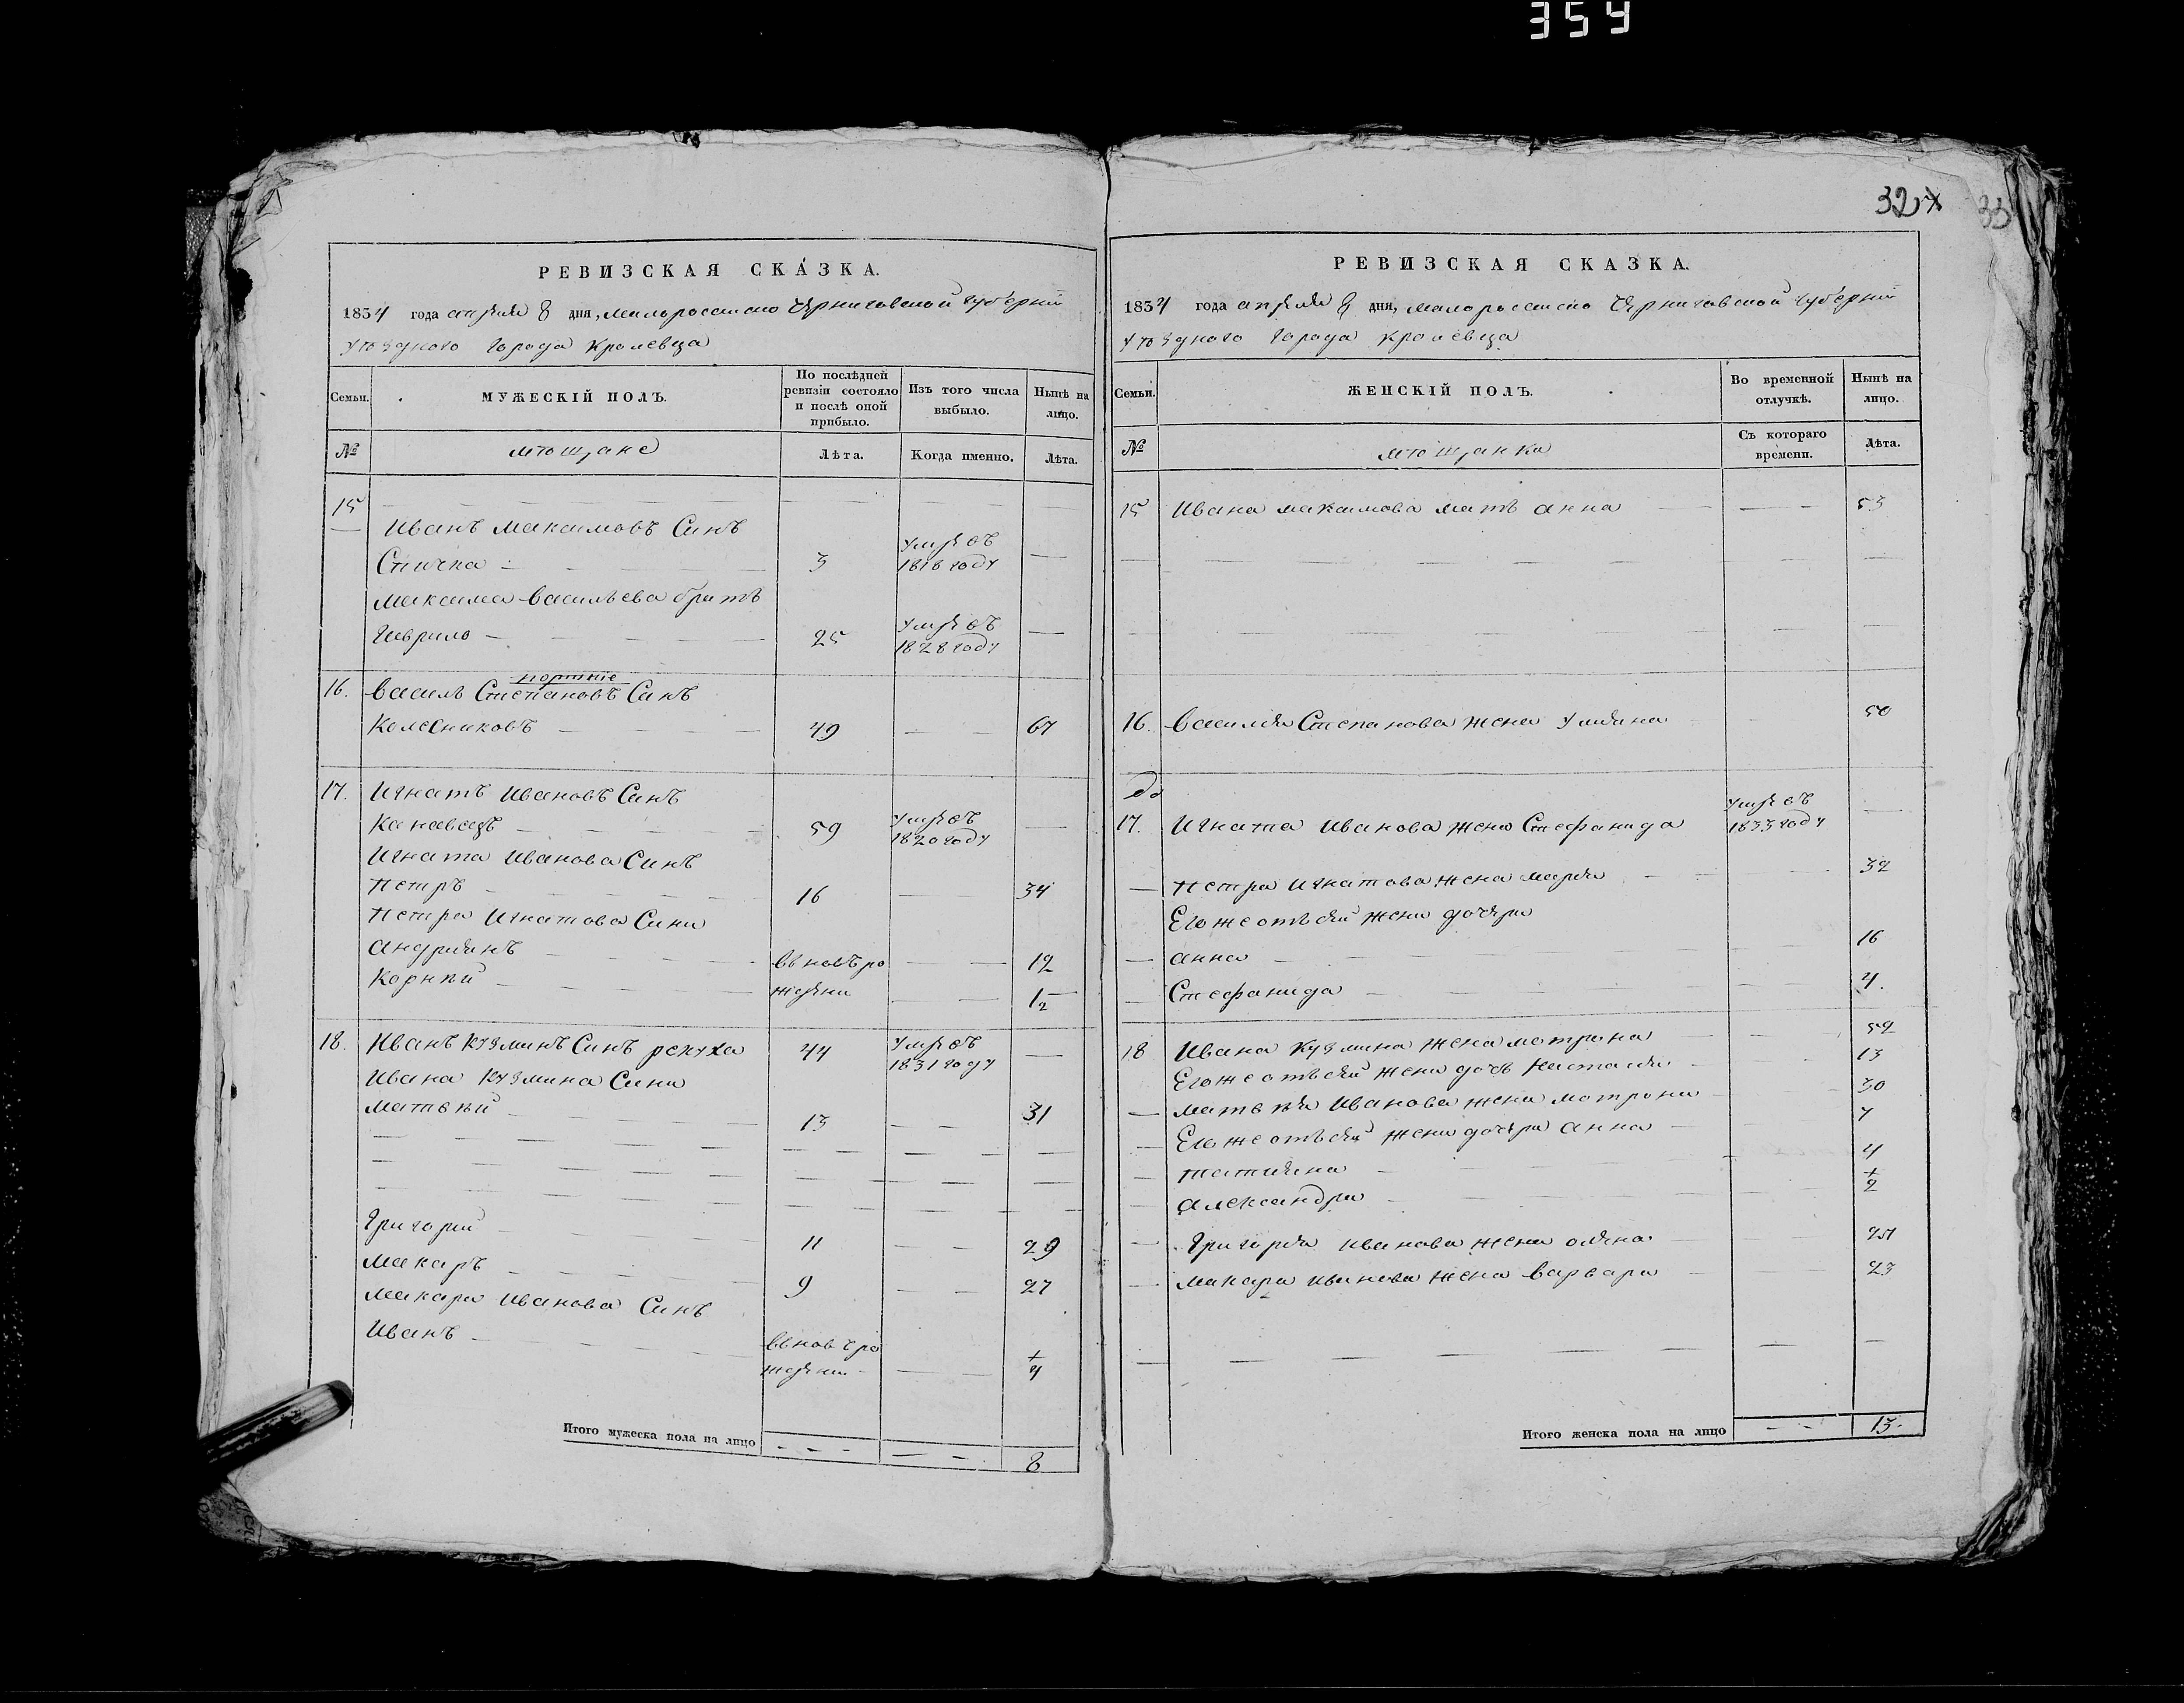 354
32
33
РЕВИЗСКАЯ СКАЗКА.
1834 года апреля 8 дня, малороссииско Черниговской губернии
уѣзднаго города Кролевца
Семьи.
МУЖЕСКІЙ ПОЛЪ.
По послѣдней ревизіи состояло и послѣ оной прибыло.
Изъ того числа выбыло.
Нынѣ на лицо.
№
мѣщане
Лѣта.
Когда именно.
Лѣта.
15
Иванъ Максимовъ Синъ
Спичка 3 умре въ 1818 году
Максима Васильева братъ
Гаврило 25 умре въ 1828 году
16. Василь Степановъ Синъ
Колесниковъ 49 67
17. Игнатъ Ивановъ Синъ
Канавецъ 59 умре въ 1820 году
Игната Иванова Синъ
Петръ 16 34
Петра Игнатова Сини
Андриянъ вьновъ ро 12
Корнѣй 1/2
18. Иванъ Кузминъ Синъ репуха 44 умре въ 1831 году
Ивана Кузмина Сини
Матвѣй 13 31
Григорий 11 29
Макаръ 9 27
Макара Иванова Синъ
Иванъ вьновъ ро
Итого мужеска пола на лицо 8
РЕВИЗСКАЯ СКАЗКА.
1834 года апреля 8 дня, малороссииско Черниговской губернии
уѣзднаго города Кролевца
Семьи.
ЖЕНСКІЙ ПОЛЪ.
Во временной отлучкѣ.
Нынѣ на лицо.
№
мѣщанки
Съ котораго времени.
Лѣта.
15 Ивана Максимова мать анна 53
16. Василия Степанова жена Улияна 50
17. Игната Иванова жена Стефанида умре въ 1833 году
Петра Игнатова жена мария 32
Его же отъ сей жени дочери
анна 16
Стефанида 4.
18 Ивана Кузмина жена мотрона 52
Его же отъ сей жени дочь Наталия 13
Матвѣя Иванова жена мотрона 30
Его же отъ сей жени дочери анна 7
татияна 4
александра 1/2
Григория Иванова жена олена 25
Макара Иванова жена Варвара 23
Итого женска пола на лицо 13.